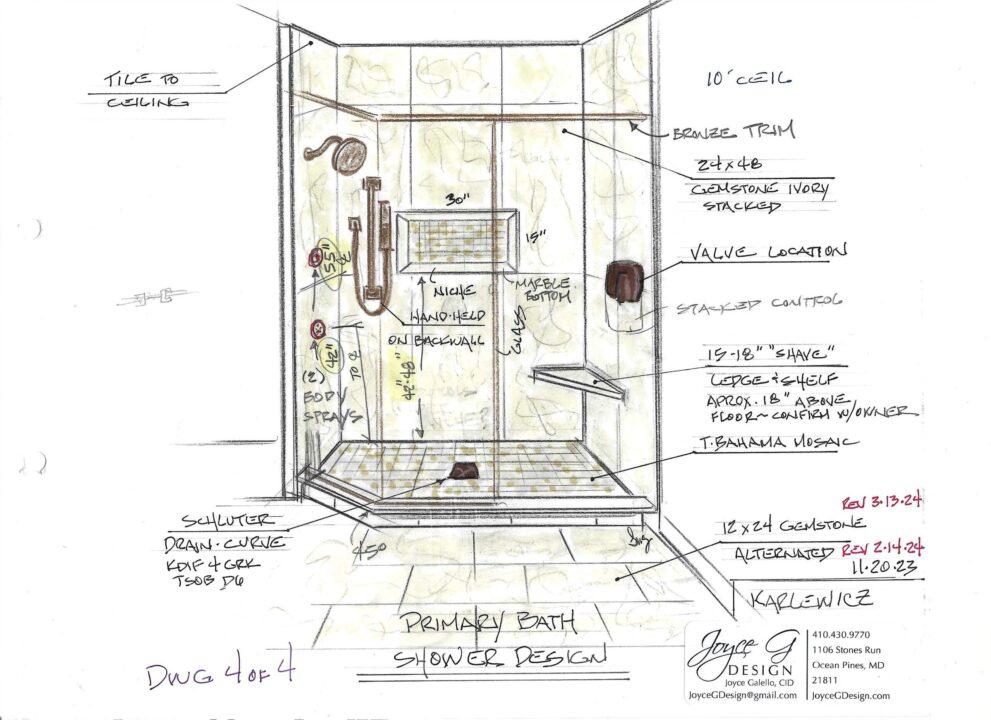 TILE TO
CEILING
10' CEIL
BRONZE TRIM
24 x 48
GEMSTONE IVORY
STACKED
30"
15"
VALVE LOCATION
NICHE
MARBLE
BOTTOM
STACKED CONTROL
HAND-HELD
ON BACKWALL
GLASS
55"
42"
TO
42-48"
(2)
BODY
SPRAYS
15-18" "SHAVE"
LEDGE & SHELF
APROX. 18" ABOVE
FLOOR ~ CONFIRM W/OWNER
T. BAHAMA MOSAIC
SCHLUTER
DRAIN - CURVE
KDIF 4 GRK
TSOB D6
45°
REV 3.13.24
12 x 24 GEMSTONE
ALTERNATED
REV 2.14.24
11.20.23
KARLEWICZ
PRIMARY BATH
SHOWER DESIGN
DWG 4 OF 4
Joyce G
DESIGN
Joyce Galello, CID
JoyceGDesign@gmail.com
410.430.9770
1106 Stones Run
Ocean Pines, MD
21811
JoyceGDesign.com